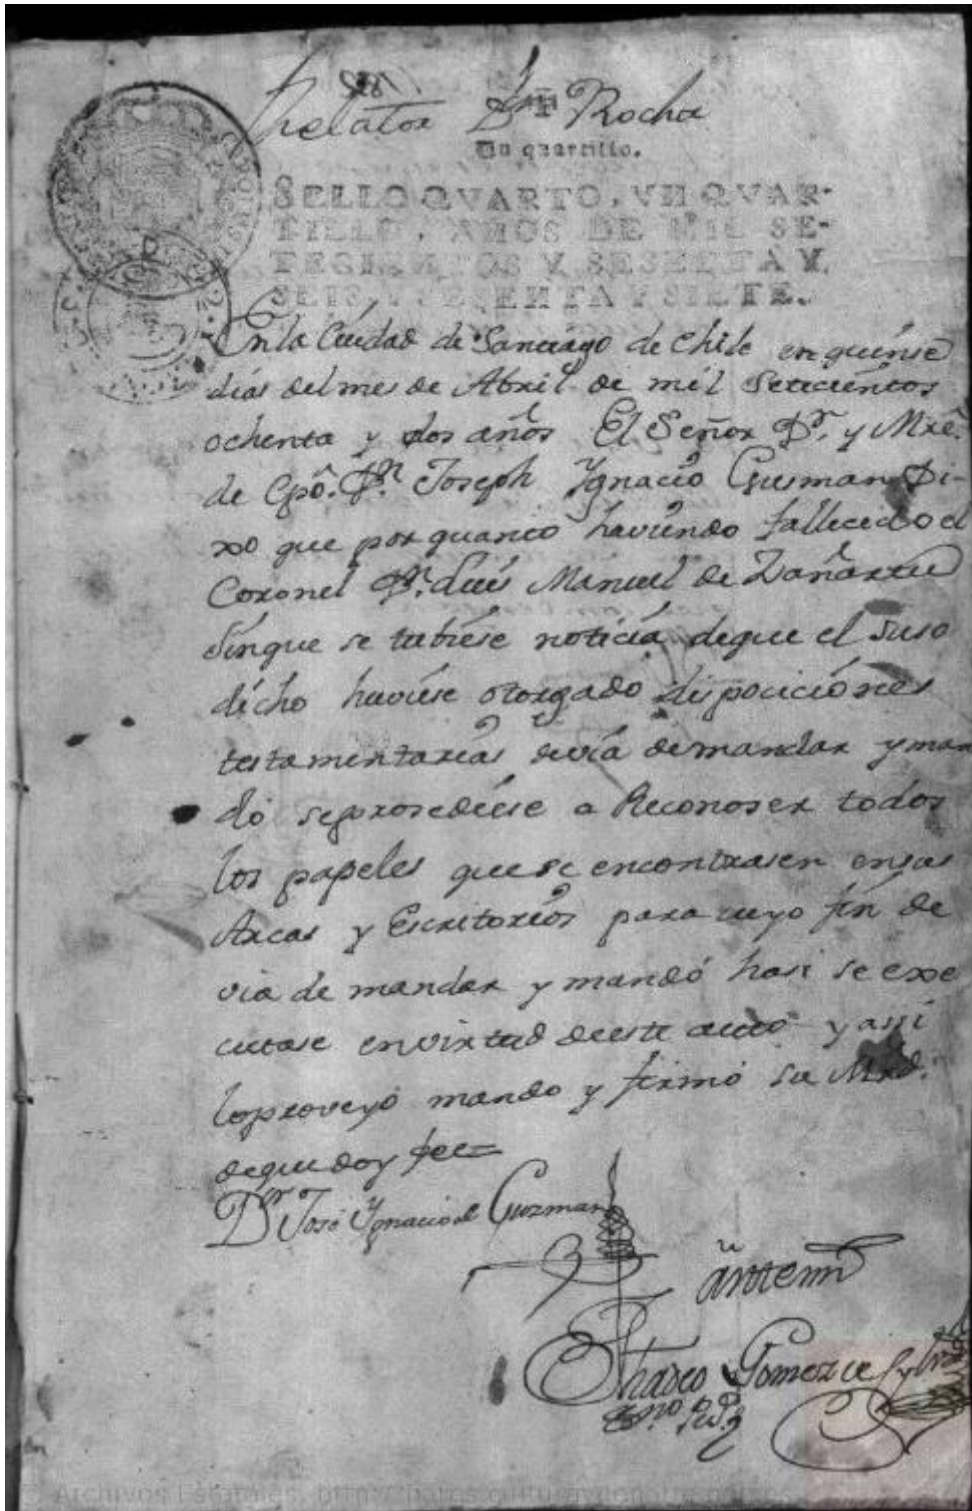 Relator Dn Rocha
Un quartillo.
SELLO QVARTO, VN QVAR-
TILLO, AÑOS DE MIL SE-
TECIENTOS Y SESENTA Y
SEIS Y SESENTA Y SIETE.
En la Ciudad de Santiago de Chile en quinse
dias del mes de Abril de mil setecientos
ochenta y dos años El Señor Dr. y Mrê.
de Cpô. Dn. Joseph Ygnacio Gusman Di-
xo que por quanto haviendo fallecido el
Coronel Dn. Luis Manuel de Zañartu
sin que se tubiese noticia de que el suso
dicho huviese otorgado disposiciones
testamentarias devia de mandar y man
dó se prosediese a Reconoser todos
los papeles que se encontrasen en sus
Arcas y Escritorios para cuyo fin de
via de mandar y mandó hasi se exe
cutase en virtud de este auto y assi
lo proveyó mando y firmó su Mrd.
de que doy fee=
Dr José Ygnacio de Guzman
Antemi
Thadeo Gomez de Sylva
Esno Pubco
Archivos Estatales, http://pares.